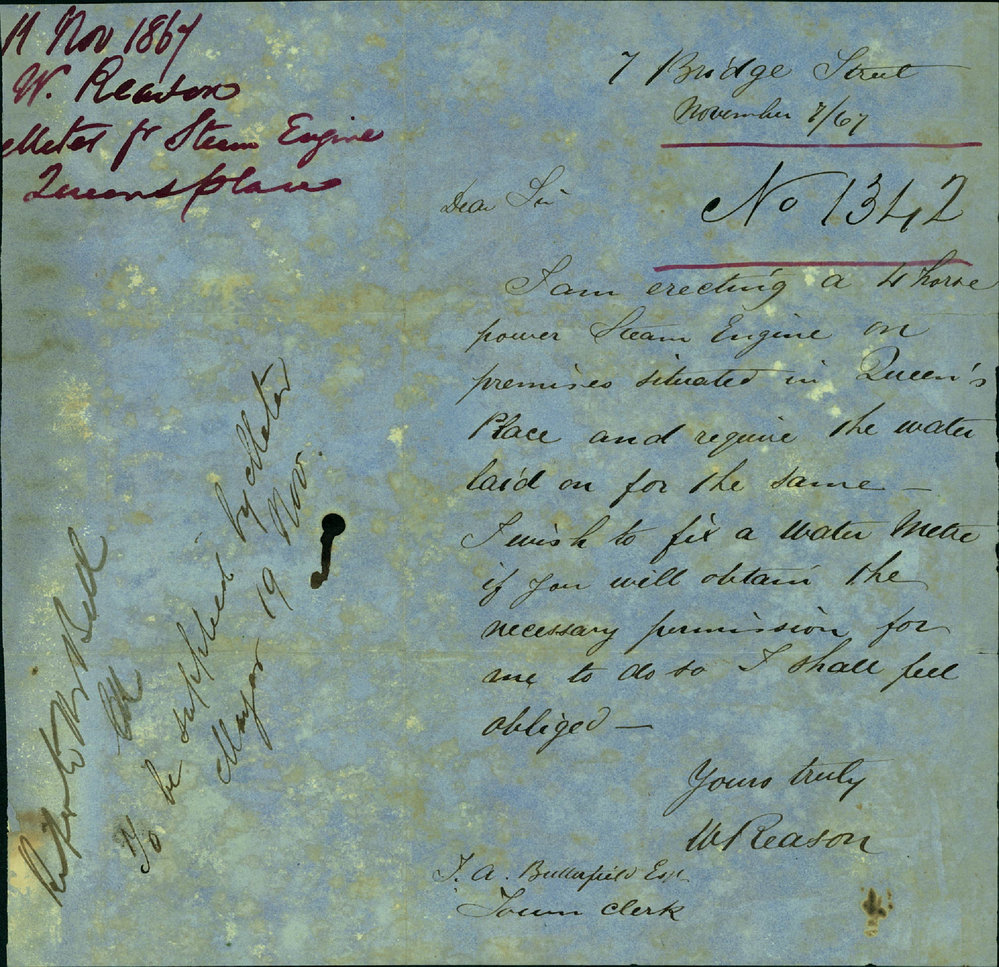 11 Nov 1867
W. Reason
Meter fr Steam Engine
Queens place
7 Bridge Street
November 7/67
No 1342
Dear Sir
I am erecting a 4 horse
power Steam Engine on
premises situated in Queen's
Place and require the water
laid on for the same —
I wish to fix a Water Metre
if you will obtain the
necessary permission for
me to do so I shall feel
obliged —
Yours truly
W Reason
T. A. Butterfield Esq
Town Clerk
Mr Bell
To be supplied by Meter
Mayor 19 Nov.